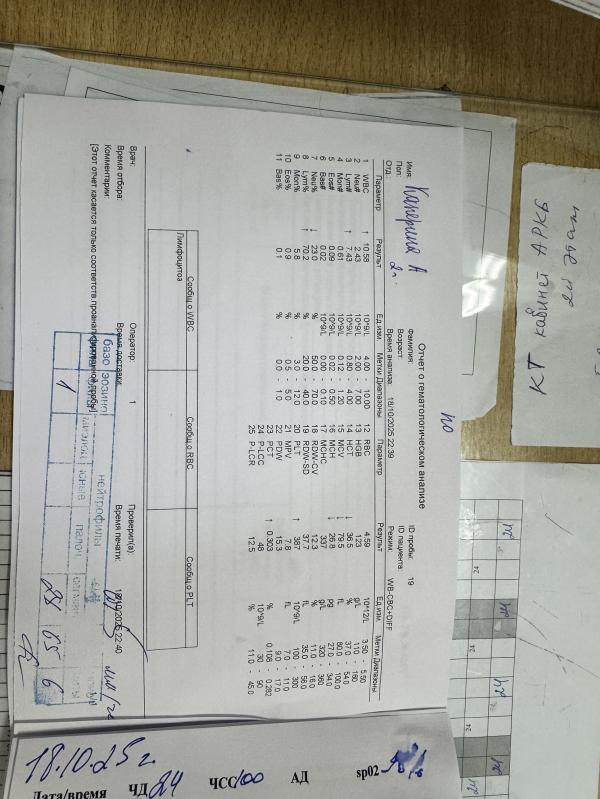 КТ кабинет АРКБ
2й этаж
по
Отчет о гематологическом анализе
Имя: Фамилия: ID пробы: 19
Пол: Возраст: ID пациента:
Отд. Время анализа 18/10/2025 22:39 Режим: WB-CBC+DIFF
А
2г.
Параметр Результ Ед.изм. Метки Диапазоны Параметр Результ Ед.изм. Метки Диапазоны
1 WBC ↑ 10.58 10^9/L 4.00 - 10.00 12 RBC 4.59 10^12/L 3.50 - 5.50
2 Neu# 2.43 10^9/L 2.00 - 7.00 13 HGB 123 g/L 110 - 160
3 Lym# ↑ 7.43 10^9/L 0.80 - 4.00 14 HCT ↓ 36.5 % 37.0 - 54.0
4 Mon# 0.61 10^9/L 0.12 - 1.20 15 MCV ↓ 79.5 fL 80.0 - 100.0
5 Eos# 0.09 10^9/L 0.02 - 0.50 16 MCH ↓ 26.8 pg 27.0 - 34.0
6 Bas# 0.02 10^9/L 0.00 - 0.10 17 MCHC 337 g/L 320 - 360
7 Neu% ↓ 23.0 % 50.0 - 70.0 18 RDW-CV 12.3 % 11.0 - 16.0
8 Lym% ↑ 70.2 % 20.0 - 40.0 19 RDW-SD 37.7 fL 35.0 - 56.0
9 Mon% 5.8 % 3.0 - 12.0 20 PLT ↑ 387 10^9/L 100 - 300
10 Eos% 0.9 % 0.5 - 5.0 21 MPV 7.8 fL 7.0 - 11.0
11 Bas% 0.1 % 0.0 - 1.0 22 PDW 15.3 9.0 - 17.0
23 PCT ↑ 0.303 % 0.108 - 0.282
24 P-LCC 48 10^9/L 30 - 90
25 P-LCR 12.5 % 11.0 - 45.0
Сообщ о WBC Сообщ о RBC Сообщ о PLT
Лимфоцитоз
Врач: Оператор: 1 Проверил(а):
Время отбора: Время доставки: Время печати: 18/10/2025 22:40
Комментарии:
[Этот отчет касается только соответств.проанализированной пробы]
базо эозино нейтрофилы
юные палоч
1 28 65 6
18.10.25г.
Дата/время ЧД 24 ЧСС 100 АД sp02
24
24
24
24
24